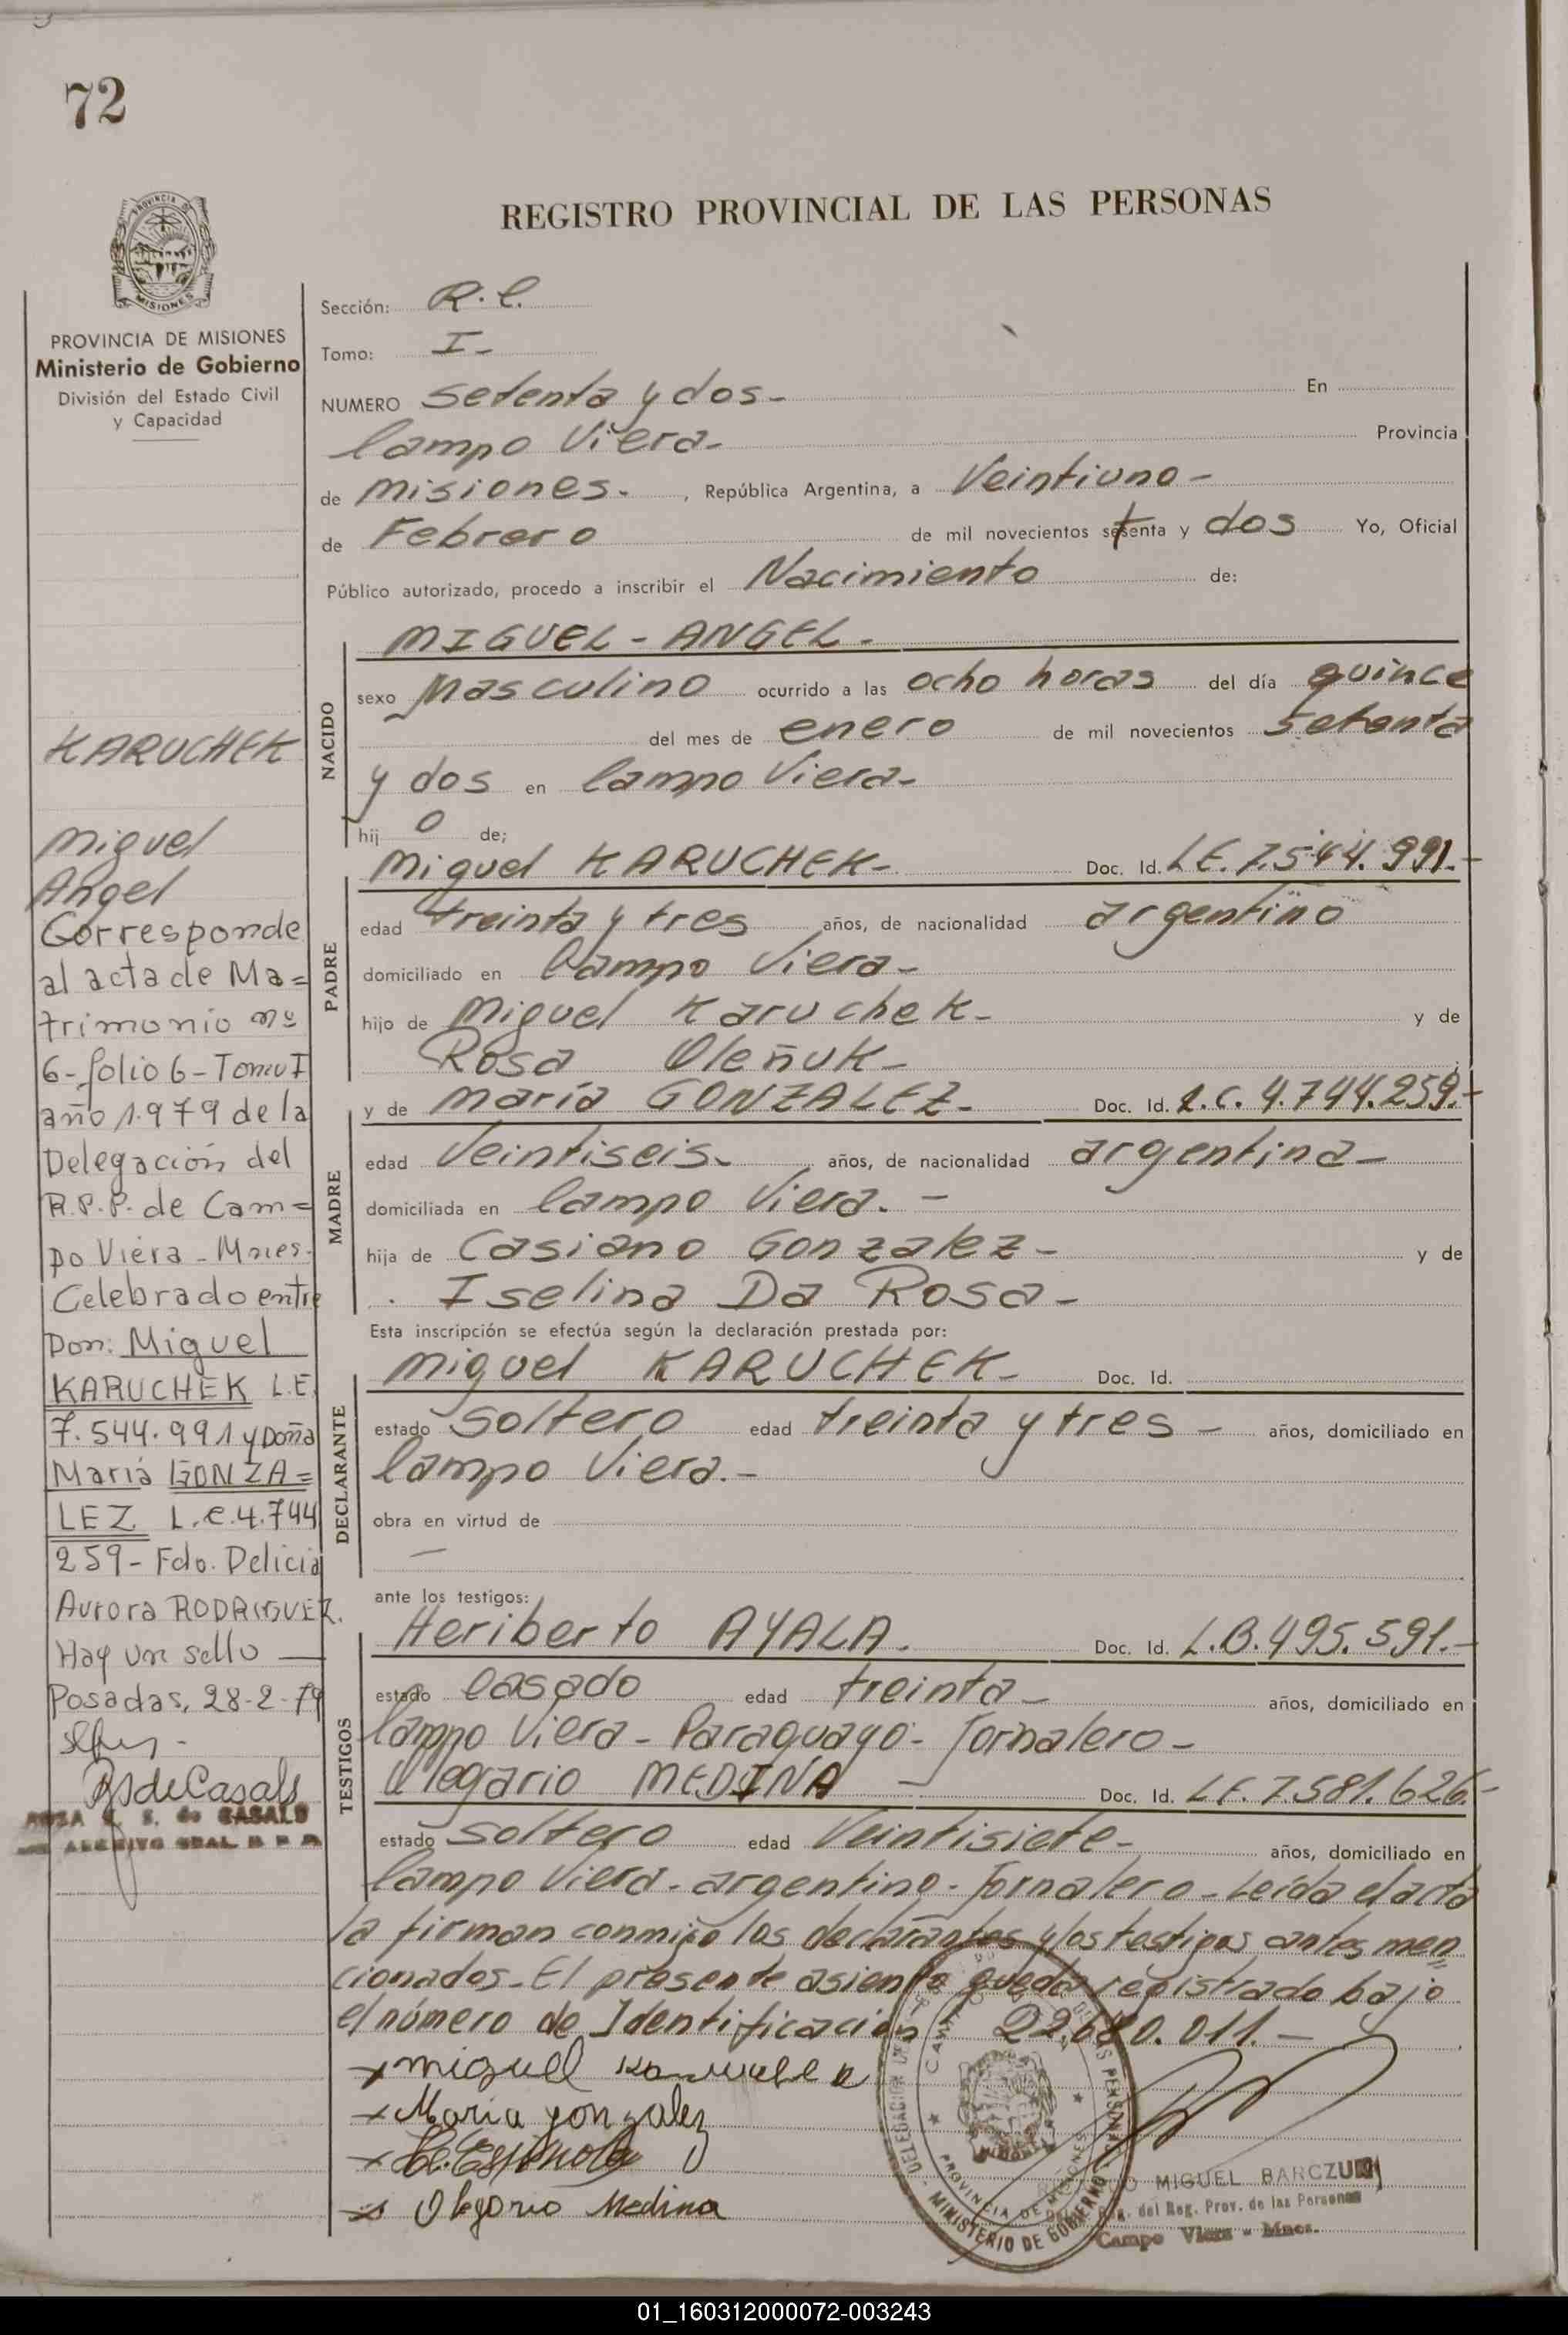 72
REGISTRO PROVINCIAL DE LAS PERSONAS
PROVINCIA DE MISIONES
Ministerio de Gobierno
División del Estado Civil
y Capacidad
Sección: R.C.
Tomo: I-
NUMERO setenta y dos- En
Campo Viera- Provincia
de Misiones. , República Argentina, a Veintiuno-
de Febrero de mil novecientos setenta y dos Yo, Oficial
Público autorizado, procedo a inscribir el Nacimiento de:
NACIDO
MIGUEL - ANGEL.
sexo Masculino ocurrido a las ocho horas del día quince
del mes de enero de mil novecientos setenta
y dos en Campo Viera-
hij o de;
PADRE
Miguel KARUCHEK- Doc. Id. L.E. 7.544.991.-
edad treinta y tres años, de nacionalidad argentino
domiciliado en Campo Viera-
hijo de Miguel Karuchek- y de
Rosa Oleñuk-
MADRE
y de Maria GONZALEZ- Doc. Id. L.C. 4.744.259.-
edad Veintiseis- años, de nacionalidad argentina-
domiciliada en Campo Viera. -
hija de Casiano Gonzalez- y de
Iselina Da Rosa-
Esta inscripción se efectúa según la declaración prestada por:
DECLARANTE
Miguel KARUCHEK- Doc. Id.
estado Soltero edad treinta y tres - años, domiciliado en
Campo Viera.-
obra en virtud de
—
ante los testigos:
TESTIGOS
Heriberto AYALA. Doc. Id. L.B. 495.591.-
estado Casado edad treinta- años, domiciliado en
Campo Viera - Paraguayo - Jornalero -
Olegario MEDINA - Doc. Id. L.E. 7.581.626.-
estado Soltero edad Veintisiete- años, domiciliado en
Campo Viera - argentino - Jornalero - Leída el acta
la firman conmigo los declarantes y los testigos antes men
cionados - El presente asiento queda registrado bajo
el número de Identificación 22.680.011.-
x Miguel
x Maria gonzalez
x
x Olegario Medina
KARUCHEK
Miguel
Angel
Corresponde
al acta de Ma=
trimonio nº
6 - folio 6 - Tomo I
año 1.979 de la
Delegación del
R.P.P. de Cam=
po Viera - Mnes.
Celebrado entre
Don: Miguel
KARUCHEK L.E.
7.544.991 y Doña
María GONZA=
LEZ L.C. 4.744
259 - Fdo. Delicia
Aurora RODRIGUEZ.
Hay un sello —
Posadas, 28-2-79
de Casals
ROSA de CASALS
PROVINCIA DE MISIONES
MINISTERIO DE GOBIERNO
MIGUEL BARCZUK
del Reg. Prov. de las Personas
Campo Viera - Mnes.
01_160312000072-003243